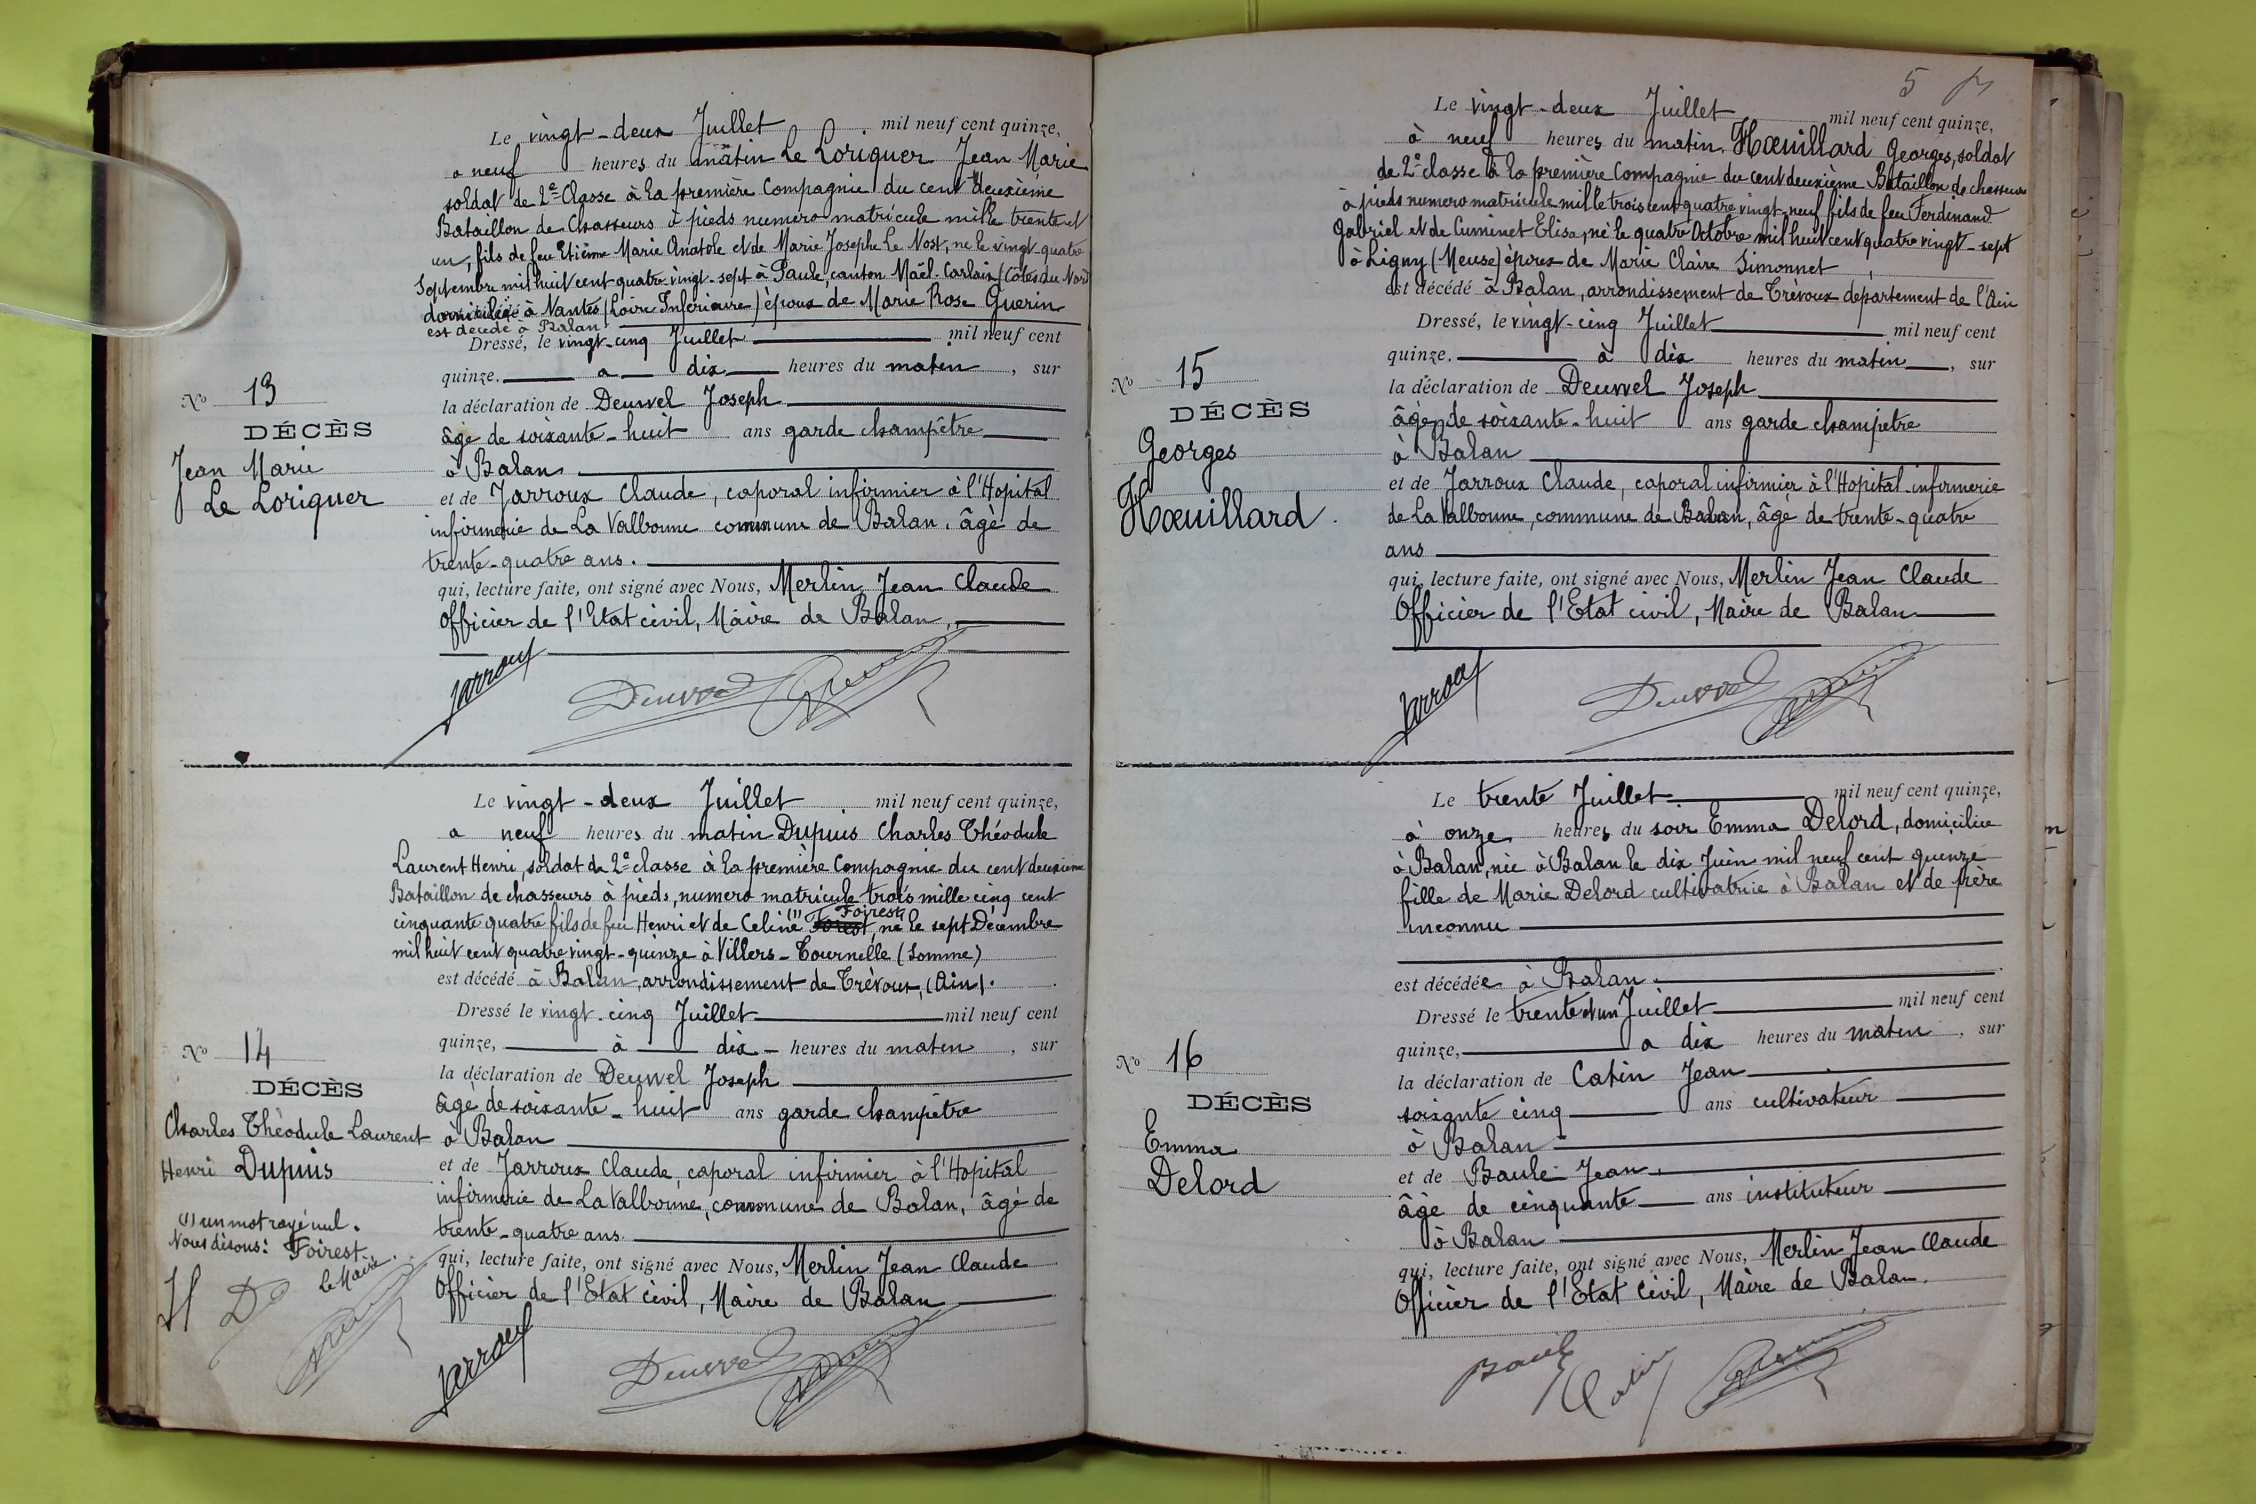 Le vingt-deux Juillet mil neuf cent quinze,
a neuf heures du matin Le Loriquer Jean Marie
soldat de 2e Classe à la première Compagnie du cent deuxième
Bataillon de Chasseurs à pieds numero matricule mille trente et
un, fils de feu Etienne Marie Anatole et de Marie Josephe Le Nost, né le vingt-quatre
Septembre mil huit cent quatre-vingt-sept à Paule, canton Maël-Carhaix (Côtes du Nord
domicilié à Nantes (Loire Inférieure) époux de Marie Rose Guerin
est décédé à Balan
Dressé, le vingt-cinq Juillet mil neuf cent
quinze. a dix heures du matin, sur
la déclaration de Deuvvel Joseph
âgé de soixante-huit ans garde champêtre
à Balan
et de Jarroux Claude, caporal infirmier à l'Hopital
infirmerie de La Valbonne commune de Balan, âgé de
trente-quatre ans.
qui, lecture faite, ont signé avec Nous, Merlin Jean Claude
Officier de l'Etat civil, Maire de Balan,
Jarroux Deuvvel
No 13
DÉCÈS
Jean Marie
Le Loriquer
Le vingt-deux Juillet mil neuf cent quinze,
a neuf heures du matin Dupuis Charles Théodule
Laurent Henri, soldat de 2e classe à la première Compagnie du cent deuxième
Bataillon de chasseurs à pieds, numero matricule trois mille cinq cent
cinquante quatre fils de feu Henri et de Celine (1) Foirest Forest, né le sept Décembre
mil huit cent quatre vingt-quinze à Villers-Tournelle (Somme)
est décédé à Balan, arrondissement de Trévoux, (Ain).
Dressé le vingt-cinq Juillet mil neuf cent
quinze, à dix heures du matin, sur
la déclaration de Deuvvel Joseph
âgé de soixante-huit ans garde champêtre
à Balan
et de Jarroux Claude, caporal infirmier à l'Hopital
infirmerie de La Valbonne, commune de Balan, âgé de
trente-quatre ans.
qui, lecture faite, ont signé avec Nous, Merlin Jean Claude
Officier de l'Etat civil, Maire de Balan
Jarroux Deuvvel
No 14
DÉCÈS
Charles Théodule Laurent
Henri Dupuis
(1) un mot rayé nul.
Nous disons: Foirest
Le Maire
5
Le vingt-deux Juillet mil neuf cent quinze,
à neuf heures du matin Hœuillard Georges, soldat
de 2e classe à la première Compagnie du cent deuxième Bataillon de chasseurs
à pieds numero matricule mille trois cent quatre vingt-neuf fils de feu Ferdinand
Gabriel et de Cuminet Elisa, né le quatre Octobre mil huit cent quatre vingt-sept
à Ligny (Meuse) époux de Marie Claire Simonnet
est décédé à Balan, arrondissement de Trévoux departement de l'Ain
Dressé, le vingt-cinq Juillet mil neuf cent
quinze. à dix heures du matin, sur
la déclaration de Deuvvel Joseph
âgé de soixante-huit ans garde champêtre
à Balan
et de Jarroux Claude, caporal infirmier à l'Hopital infirmerie
de La Valbonne, commune de Balan, âgé de trente-quatre
ans
qui, lecture faite, ont signé avec Nous, Merlin Jean Claude
Officier de l'Etat civil, Maire de Balan
Jarroux Deuvvel
No 15
DÉCÈS
Georges
Hœuillard.
Le trente Juillet mil neuf cent quinze,
à onze heures du soir Emma Delord, domiciliée
à Balan, née à Balan le dix Juin mil neuf cent quinze
fille de Marie Delord cultivatrice à Balan et de père
inconnu
est décédée à Balan.
Dressé le trente et un Juillet mil neuf cent
quinze, a dix heures du matin, sur
la déclaration de Catin Jean
soixante cinq ans cultivateur
à Balan
et de Baule Jean
âgé de cinquante ans instituteur
à Balan
qui, lecture faite, ont signé avec Nous, Merlin Jean Claude
Officier de l'Etat civil, Maire de Balan.
Baule Catin
No 16
DÉCÈS
Emma
Delord